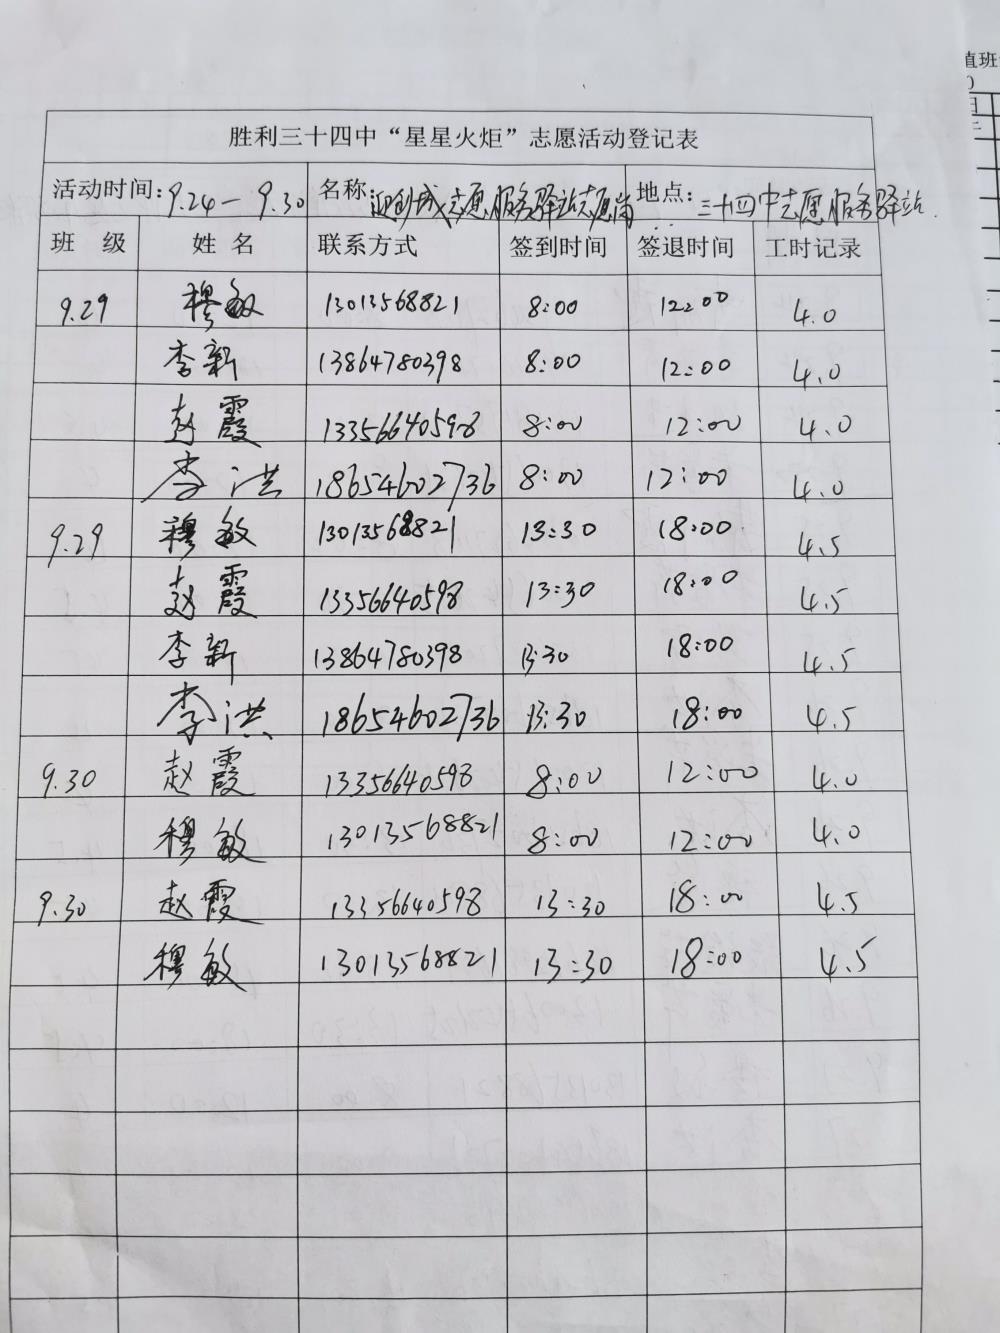 值班
胜利三十四中“星星火炬”志愿活动登记表
活动时间：9.24—9.30 名称：迎创城志愿服务驿站志愿岗 地点：三十四中志愿服务驿站
班 级 姓 名 联系方式 签到时间 签退时间 工时记录
9.29 穆敏 13013568821 8:00 12:00 4.0
李新 13864780398 8:00 12:00 4.0
赵霞 13356640598 8:00 12:00 4.0
李洪 18654602736 8:00 12:00 4.0
9.29 穆敏 13013568821 13:30 18:00 4.5
赵霞 13356640598 13:30 18:00 4.5
李新 13864780398 13:30 18:00 4.5
李洪 18654602736 13:30 18:00 4.5
9.30 赵霞 13356640598 8:00 12:00 4.0
穆敏 13013568821 8:00 12:00 4.0
9.30 赵霞 13356640598 13:30 18:00 4.5
穆敏 13013568821 13:30 18:00 4.5